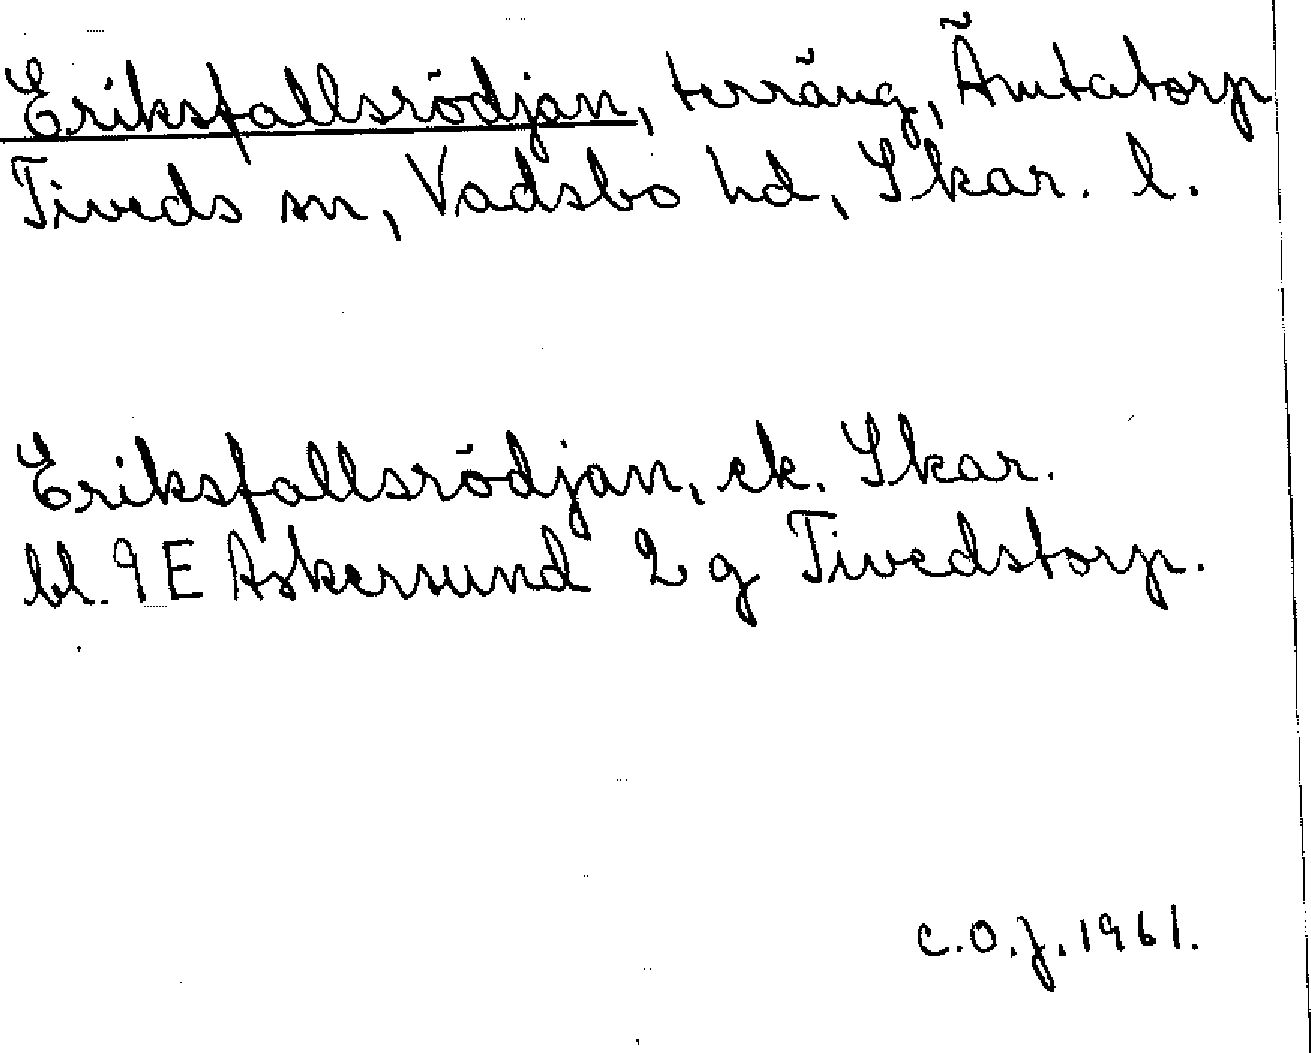 Eriksfallsrödjan, terräng, Ämtatorp
Tiveds sn, Vadsbo hd, Skar. l.
Eriksfallsrödjan, ek. Skar.
bl. 9E Askersund 2 g Tivedstorp.
C.O.J. 1961.